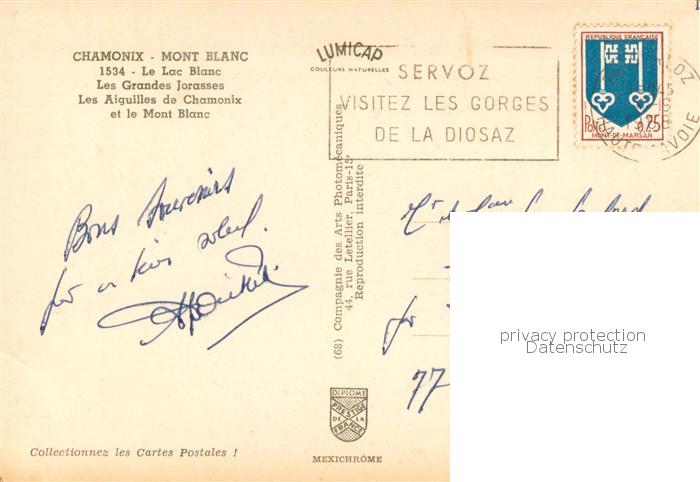 CHAMONIX - MONT BLANC
1534 - Le Lac Blanc
Les Grandes Jorasses
Les Aiguilles de Chamonix
et le Mont Blanc
LUMICAP
COULEURS NATURELLES
SERVOZ
VISITEZ LES GORGES
DE LA DIOSAZ
REPUBLIQUE FRANÇAISE
0,25
MONT-DE-MARSAN
Bons souvenirs
soleil.
77
(68) Compagnie des Arts Photomécaniques
44, rue Letellier, Paris-15e
Reproduction interdite
privacy protection
Datenschutz
DIPLOME
PRESTIGE
DE LA
FRANCE
MEXICHRÔME
Collectionnez les Cartes Postales !